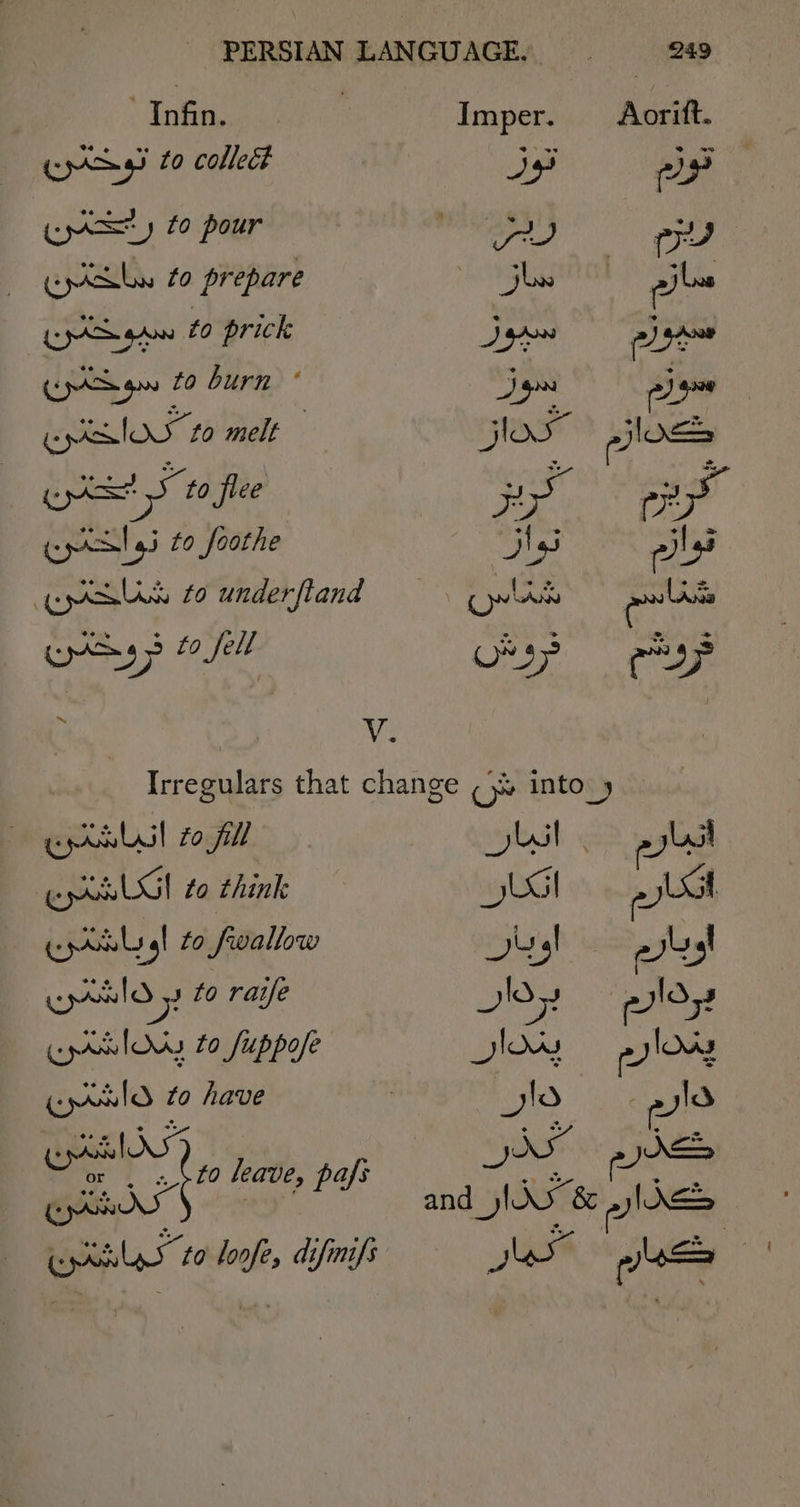 PERSIAN LANGUAGE. 249
Infin. Imper. Aoriſt.
توختن to collect توز توزم
ریختن to pour ریز ریزم
ساختن to prepare ساز سازم
سپوختن to prick سپوز سپوزم
سوختن to burn سوز سوزم
گداختن to melt گداز گدازم
گریختن to flee گریز گریزم
نواختن to ſoothe نواز نوازم
شناختن to underſtand شناس شناسم
فروختن to ſell فروش فروشم
V.
Irregulars that change ش into ر
انباشتن to fill انبار انبارم
انگاشتن to think انگار انگارم
اوباشتن to ſwallow اوبار اوبارم
برداشتن to raiſe بردار بردارم
پنداشتن to ſuppoſe پندار پندارم
داشتن to have دار دارم
گذاشتن or گذشتن to leave, paſs گذر گذرم
and گذار & گذارم
گماشتن to looſe, diſmiſs گمار گمارم